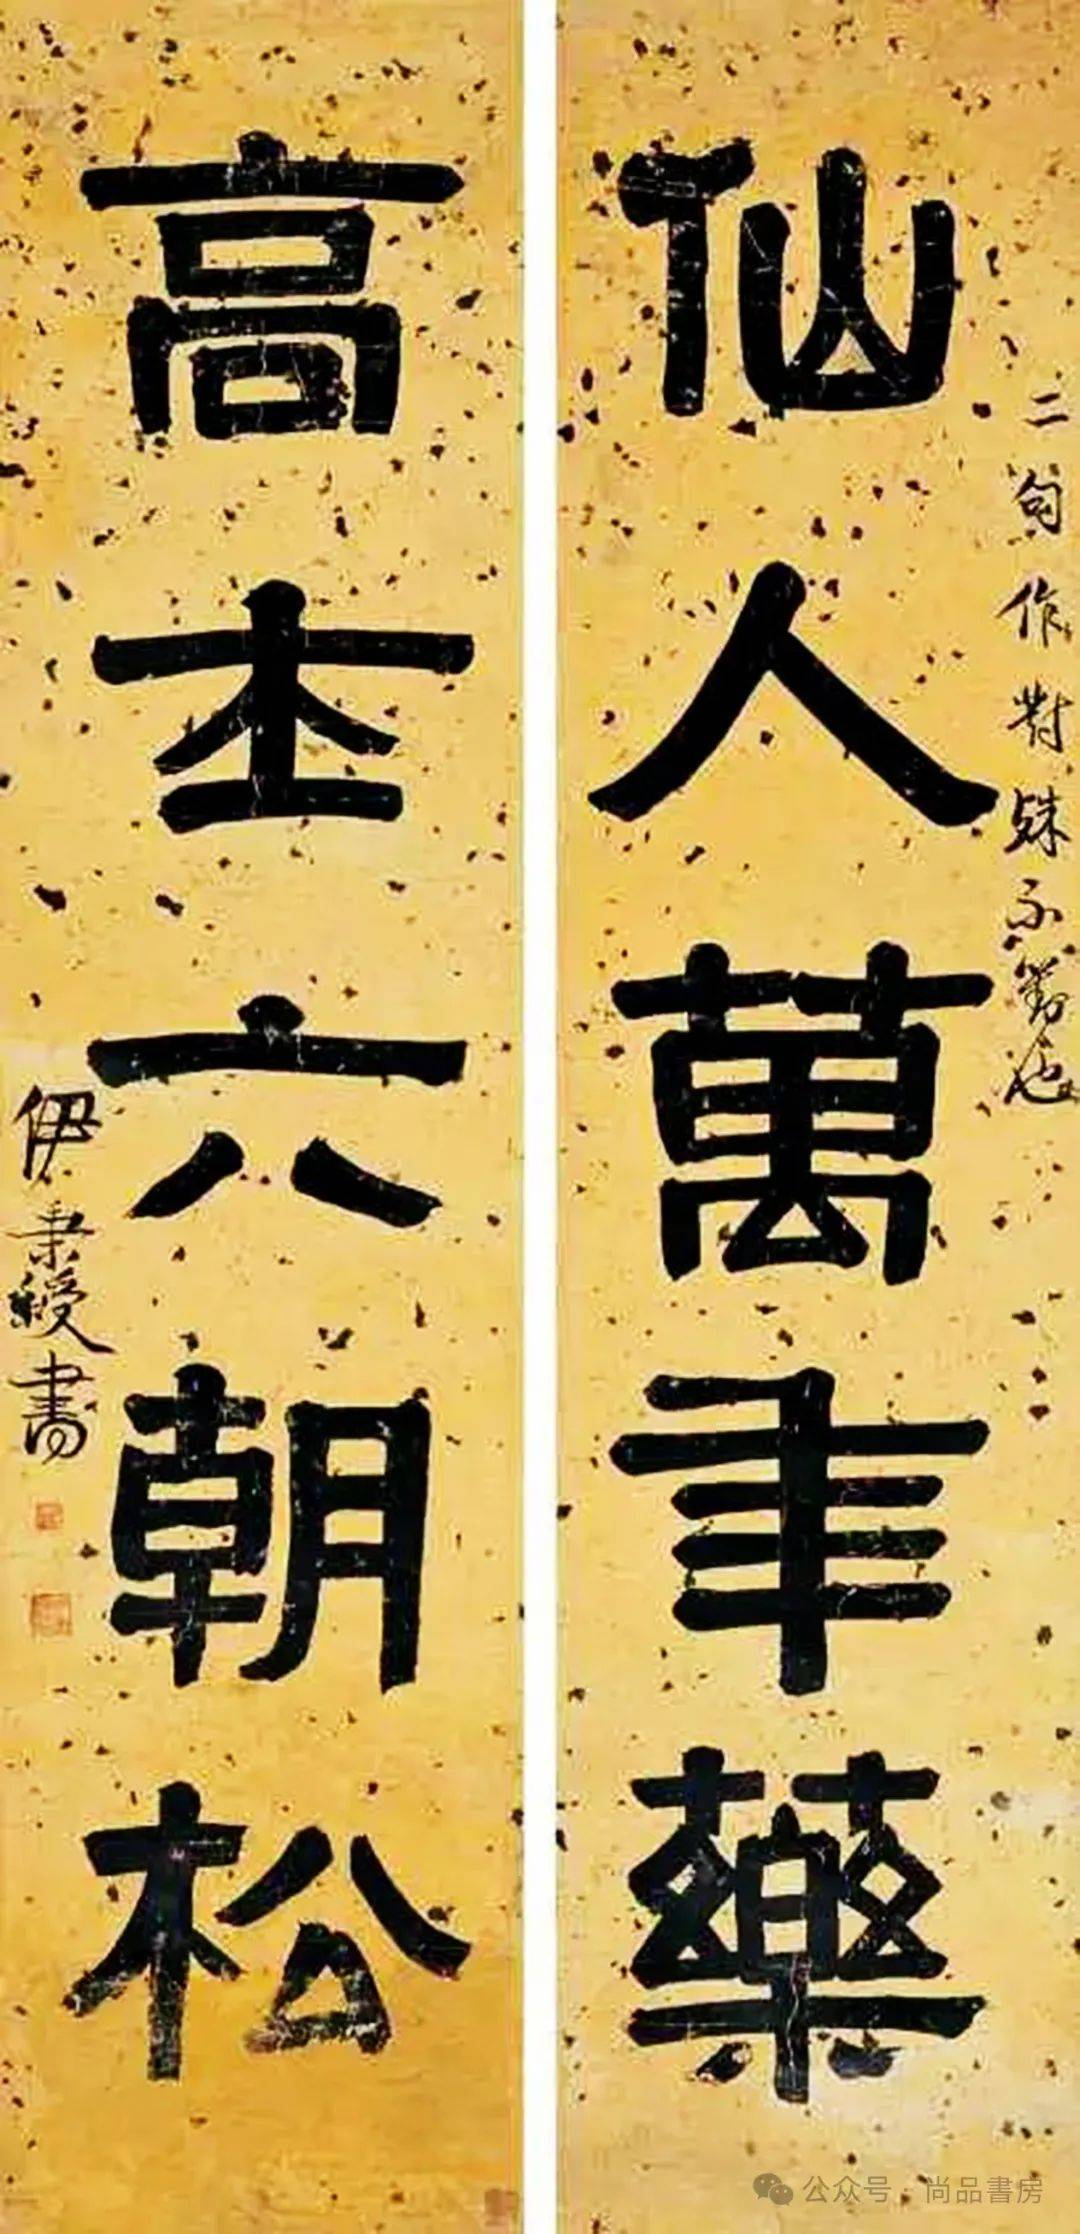 仙人萬年藥
二句作對殊不也
高本六朝松
伊秉綬書
公众号 · 尚品書房